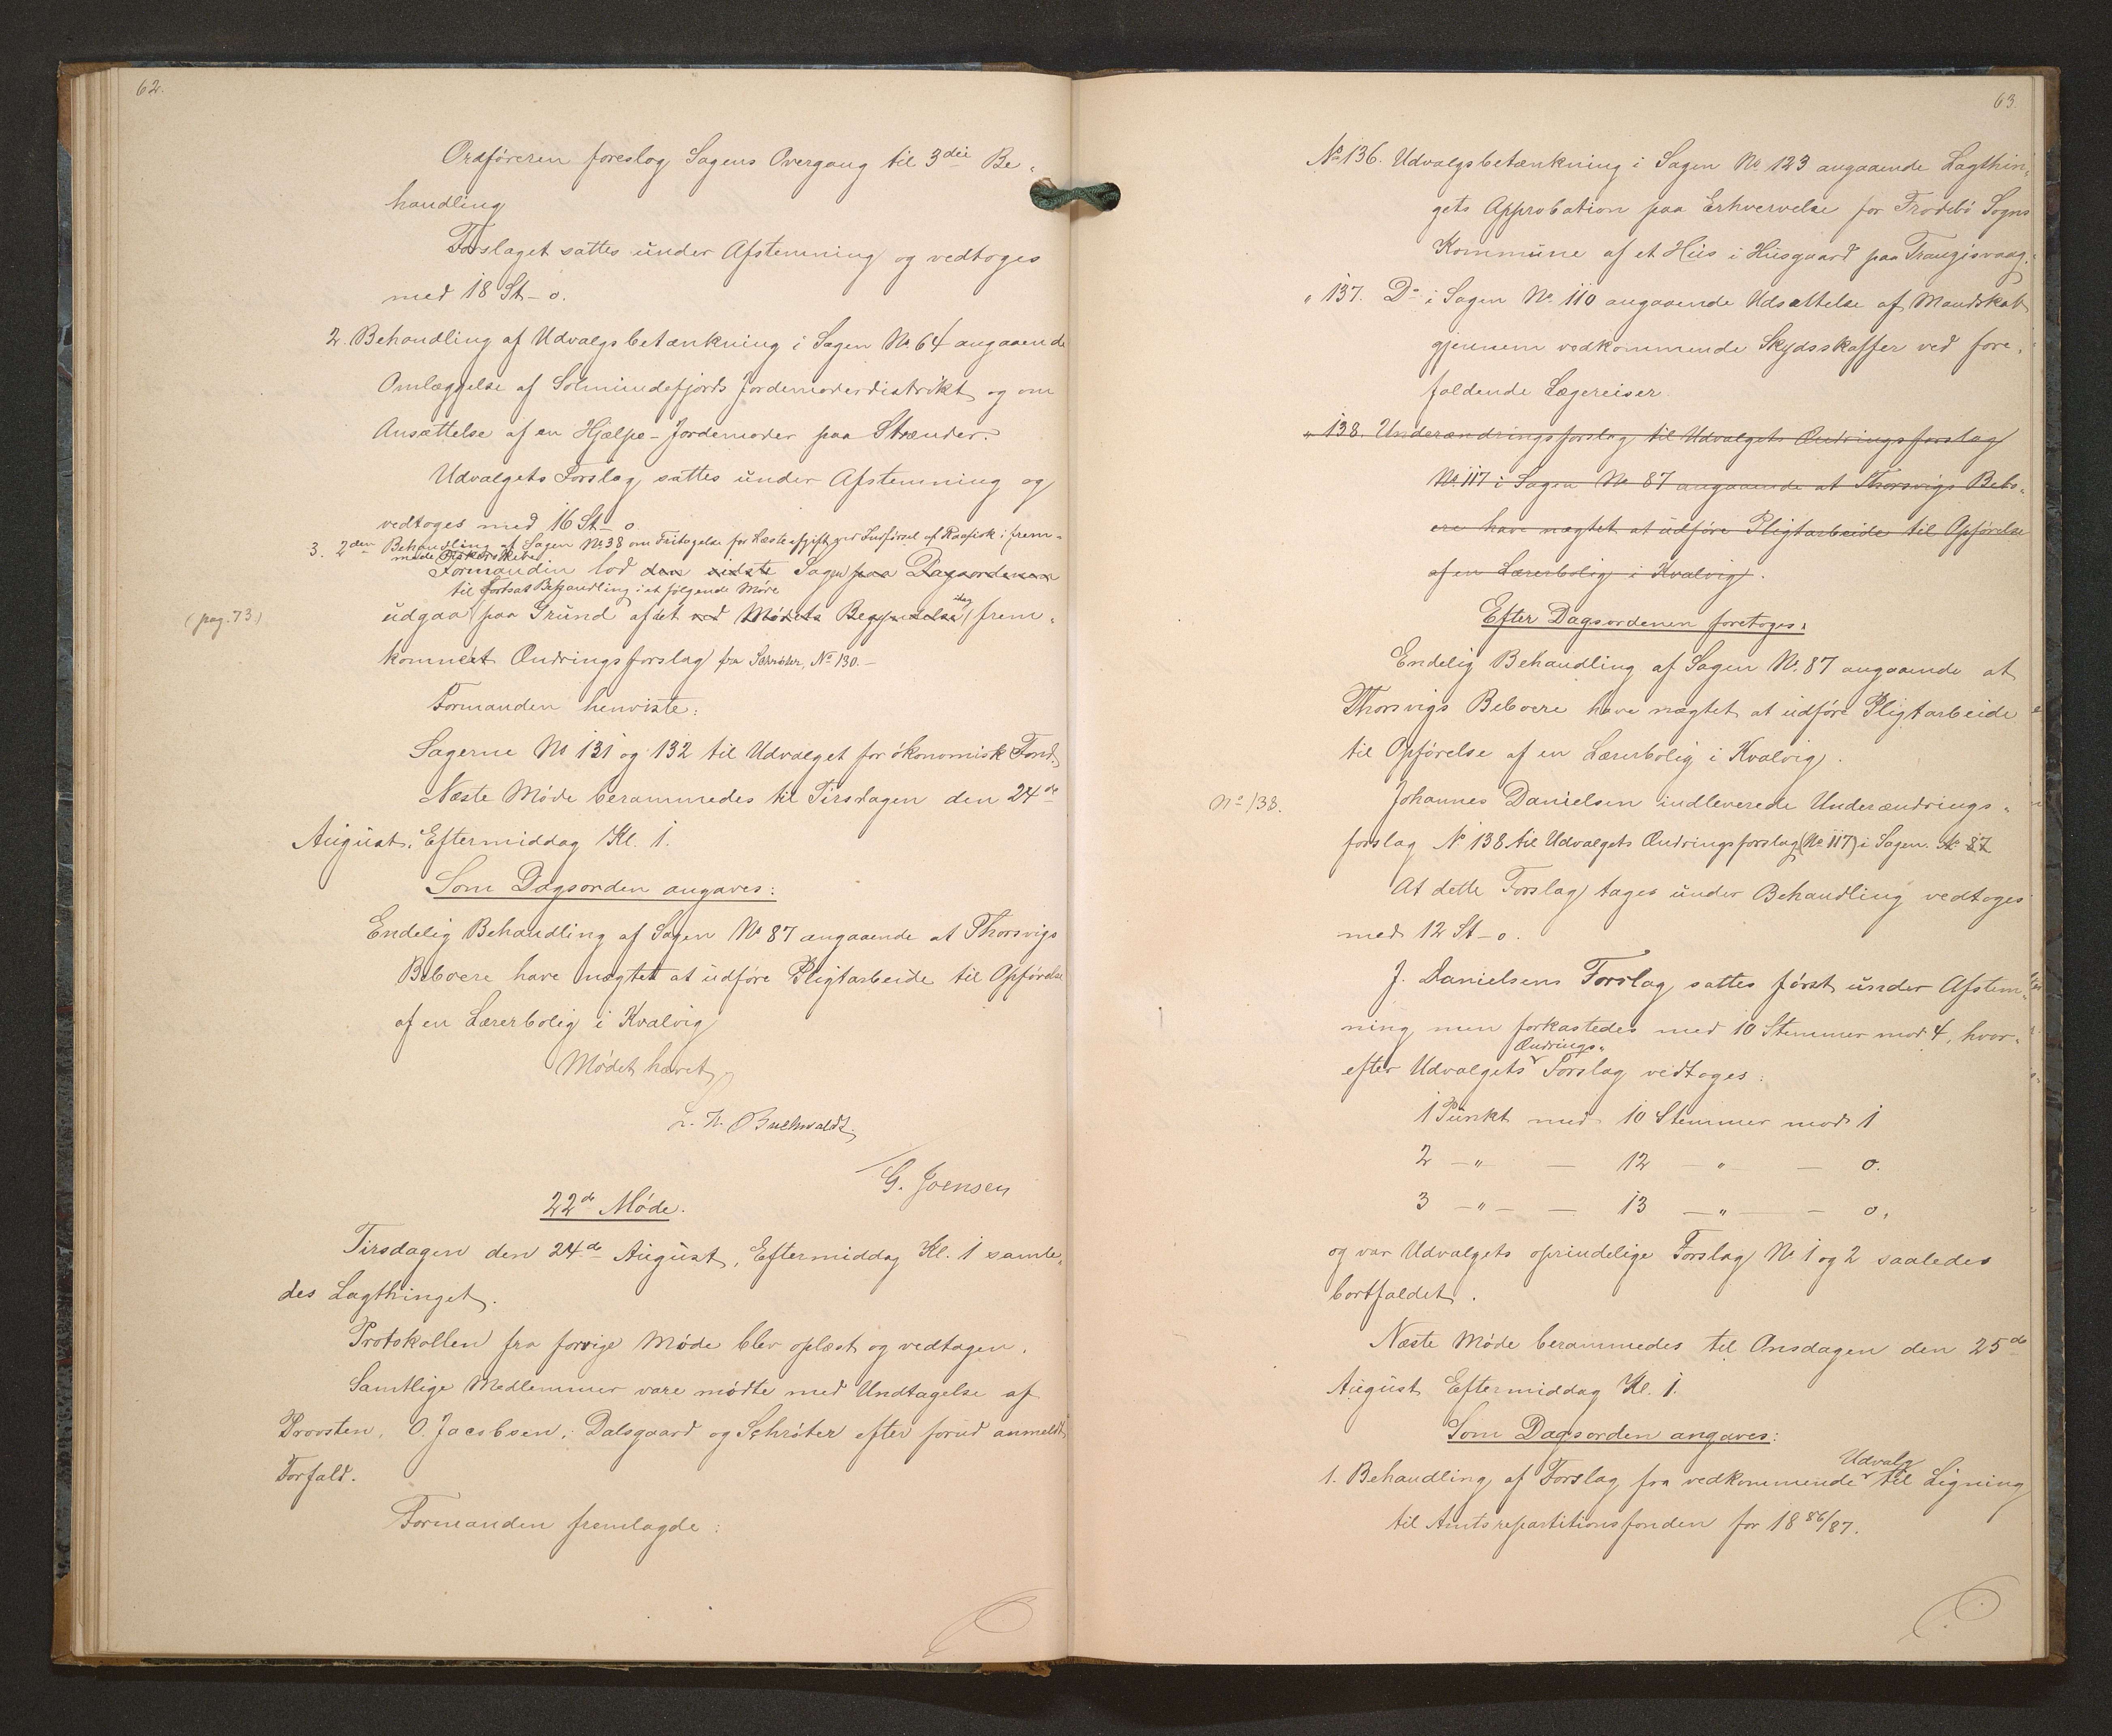 62.
Ordföreren foreslog Sagens Overgang til 3die Be-
handling
Forslaget sattes under Afstemning og vedtoges
med 18 St - 0.
2. Behandling af Udvalgsbetænkning i Sagen No 64 angaaende
Omlæggelse af Solmundefjords Jordemoderdistrikt og om
Ansættelse af en Hjælpe-Jordemoder paa Strænder.
Udvalgets Forslag sattes under Afstemning og
vedtoges med 16 St - 0
3. 2den Behandling af Sagen No 38 om Fritagelse for Næste afgift ved Indførsel af Raafisk i frem-
mede Fiskerskibe
Formanden lod den sidste Sagen paa Dagsordenen
til fortsat Behandling i et følgende Møde
(pag. 73.)
udgaa paa Grund af det ved Mødets Begyndelse idag frem-
komne Ændringsforslag fra Schrøter, No 130. -
Formanden henviste:
Sagerne No 131 og 132 til Udvalget for økonomisk Fond.
Næste Møde berammedes til Tirsdagen den 24de
August, Eftermiddag Kl. 1.
Som Dagsorden angaves:
Endelig Behandling af Sagen No 87 angaaende at Thorsvigs
Beboere have nægtet at udføre Pligtarbeide til Opførelse
af en Lærerbolig i Kvalvig
Mødet hævet
L. H. Buchwaldt.
G. Joensen
22de Møde.
Tirsdagen den 24de August, Eftermiddag Kl. 1 samle-
des Lagthinget.
Protokollen fra forrige Møde blev oplæst og vedtagen.
Samtlige Medlemmer vare mødte med Undtagelse af
Provsten, O. Jacobsen, Dalsgaard og Schrøter efter forud anmeldt
Forfald.
Formanden fremlagde:
63.
No 136. Udvalgsbetænkning i Sagen No 123 angaaende Lagthin-
gets Approbation paa Erhvervelse for Frodebø Sogns
Kommune af et Hus i Husgaard paa Trangisvaag.
" 137. Do i Sagen No 110 angaaende Udsættelse af Mandskab
gjennem vedkommende Skydsskaffer ved fore-
faldende Lægereiser.
" 138. Underændringsforslag til Udvalgets Ændringsforslag
No 117 i Sagen No 87 angaaende at Thorsvigs Bebo-
ere have nægtet at udføre Pligtarbeide til Opførelse
af en Lærerbolig i Kvalvig.
Efter Dagsordenen foretoges:
Endelig Behandling af Sagen No 87 angaaende at
Thorsvigs Beboere have nægtet at udføre Pligtarbeide
til Opførelse af en Lærerbolig i Kvalvig.
No 138.
Johannes Danielsen indleverede Underændrings-
forslag No 138 til Udvalgets Ændringsforslag (No 117) i Sagen No 87
At dette Forslag tages under Behandling vedtoges
med 12 St - 0.
J. Danielsens Forslag sattes først under Afstem-
ning men forkastedes med 10 Stemmer mod 4, hvor-
efter Udvalgets Ændrings- Forslag vedtoges:
1 Punkt med 10 Stemmer mod 1
2 - " - 12 - " - 0.
3 - " - 13 - " - 0.
og var Udvalgets oprindelige Forslag No 1 og 2 saaledes
bortfaldet.
Næste Møde berammedes til Onsdagen den 25de
August Eftermiddag Kl. 1.
Som Dagsorden angaves:
1. Behandling af Forslag fra vedkommende Udvalg til Ligning
til Amtsrepartitionsfonden for 1886/87.